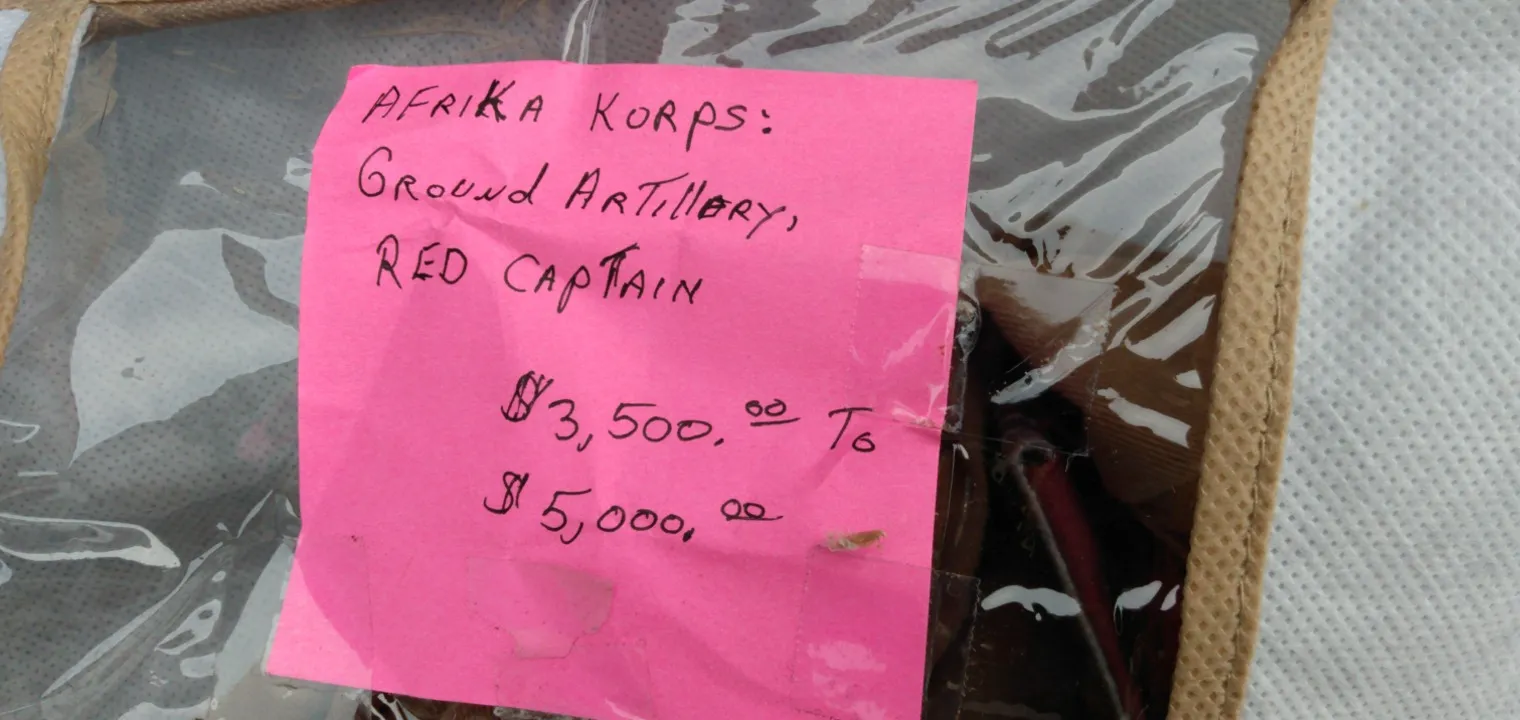 AFRIKA KORPS:
GROUND ARTILLERY,
RED CAPTAIN
$3,500.00 TO
$5,000.00